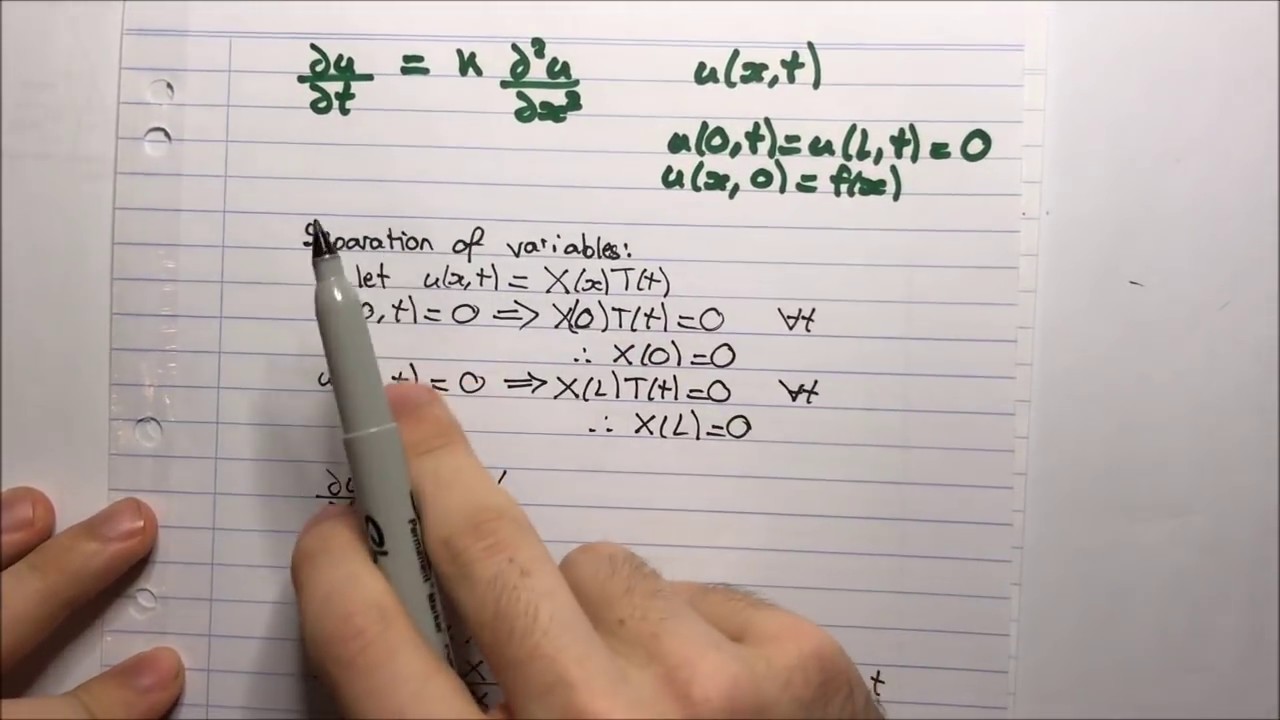 ∂u/∂t = k ∂²u/∂x² u(x,t)
u(0,t)=u(L,t)=0
u(x,0)=f(x)
Separation of variables:
let u(x,t) = X(x)T(t)
0,t)=0 ⇒ X(0)T(t)=0 ∀t
∴ X(0)=0
u t)=0 ⇒ X(L)T(t)=0 ∀t
∴ X(L)=0
∂u
Permanent Marker
t